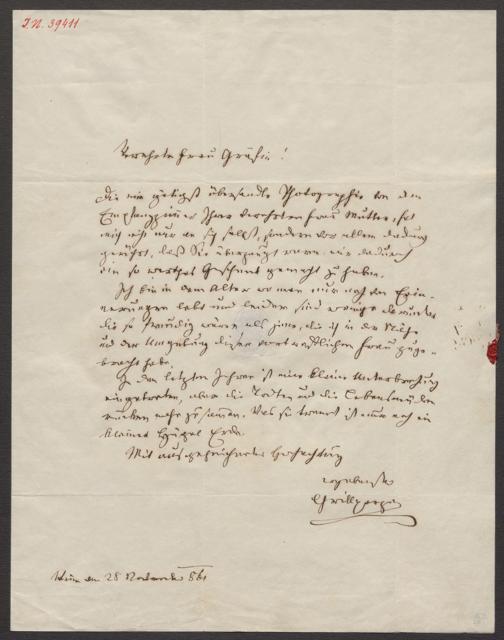 I.N. 39411
Verehrte Frau Gräfin!
Die mir gütigst übersandte Photographie von dem
Empfangzimmer Ihrer verehrten Frau Mutter, hat
mich nicht nur an sich selbst, sondern vor allem dadurch
gerührt, daß Sie überzeugt waren, mir dadurch
ein so werthes Geschenk gemacht zu haben.
Ich bin in dem Alter wo man nur noch von Erin-
nerungen lebt und leider sind wenige darunter
die so freudig wären als jene, die ich in der Nähe
und der Umgebung dieser vortrefflichen Frau zuge-
bracht habe.
In den letzten Jahren ist eine kleine Unterbrechung
eingetreten, aber die Todten und die Lebensmüden
rücken nahe zusammen. Was sie trennt ist nur noch ein
kleiner Hügel Erde.
Mit ausgezeichneter Hochachtung
ergebenster
Grillparzer
Wien am 28 November 861